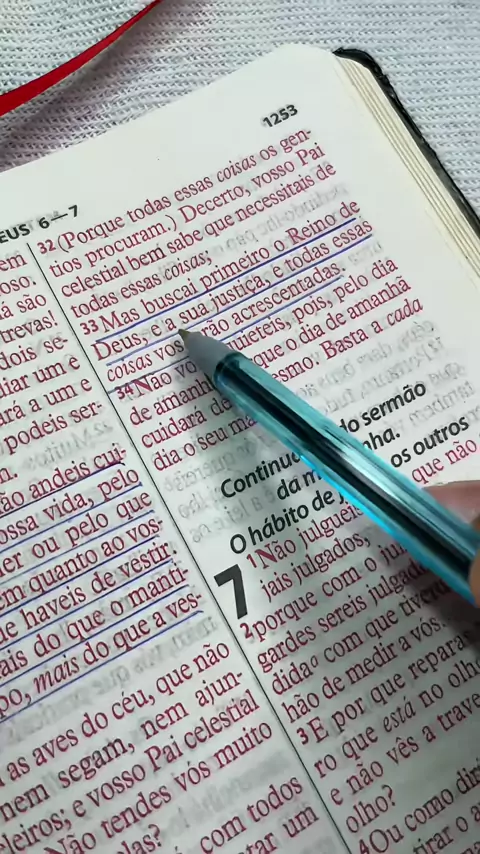 1253
EUS 6—7
em
oso,
á são
revas!
dois se-
diar um e
ará a um e
podeis ser-
n.
ão andeis cui-
ossa vida, pelo
er ou pelo que
em quanto ao vos-
ue haveis de vestir.
ais do que o manti-
po, mais do que a ves-
as aves do céu, que não
nem segam, nem ajun-
leiros; e vosso Pai celestial
Não tendes vós muito
elas?
com todos
tar um
32 (Porque todas essas coisas os gen-
tios procuram.) Decerto, vosso Pai
celestial bem sabe que necessitais de
todas essas coisas;
33 Mas buscai primeiro o Reino de
Deus, e a sua justiça, e todas essas
coisas vos rão acrescentadas.
34 Não vo quieteis, pois, pelo dia
de amanhã que o dia de amanhã
cuidará d smo. Basta a cada
dia o seu ma
Continua do sermão
da m nha.
O hábito de os outros
7
1 Não julgue que não
jais julgados,
2 porque com o ju
gardes sereis julgad
didaᵃ com que tiverd
hão de medir a vós.
3 E por que reparas
ro que está no olho
e não vês a trave
olho?
4 Ou como diri
tirar o a